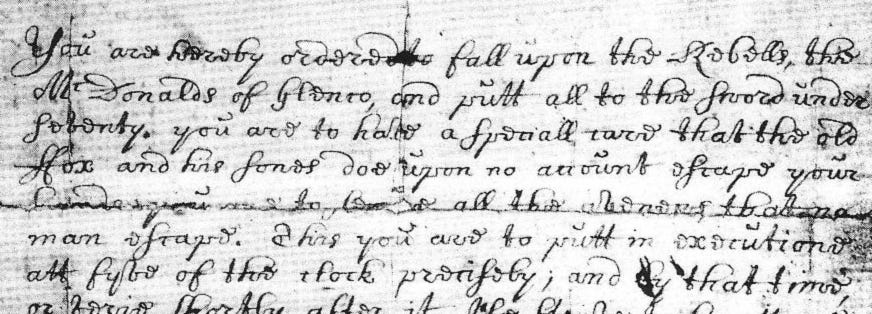 You are hereby ordered to fall upon the Rebells, the
McDonalds of Glenco, and putt all to the sword under
seventy. you are to have a speciall care that the old
ffox and his sones doe upon no account escape your
hands, you are to secure all the avenues that no
man escape. This you are to putt in executione
att fyve of the clock precisely; and by that time,
or verie shortly after it,